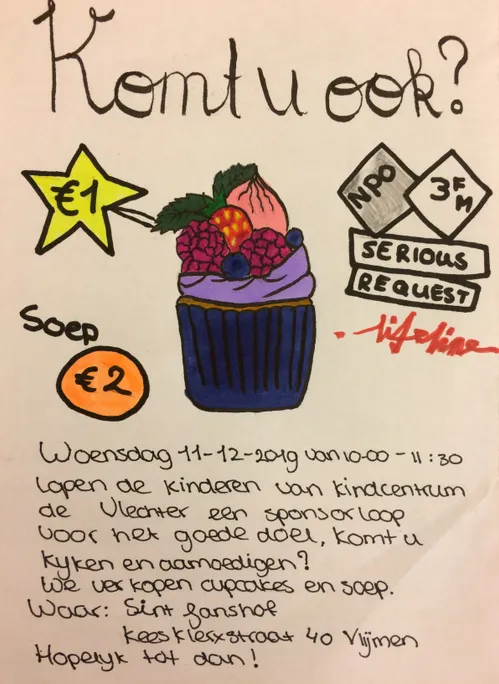 Komt u ook?
€1
NPO
3FM
SERIOUS
REQUEST
Soep
lifeline
€2
Woensdag 11-12-2019 van 10-00 - 11:30
lopen de kinderen van kindcentrum
de Vlechter een sponsorloop
voor het goede doel, komt u
kyken en aanmoedigen?
We verkopen cupcakes en soep.
Waar: Sint Janshof
Kees Klerxstraat 40 Vlijmen
Hopelyk tot dan!